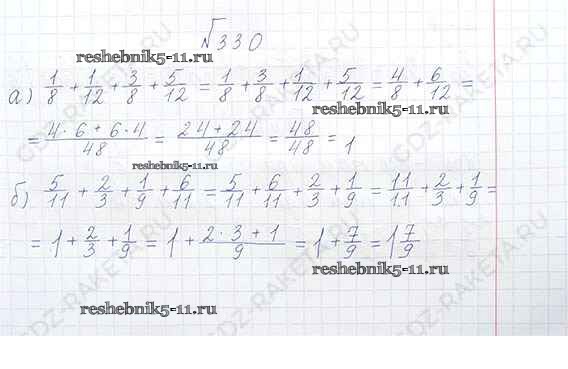 №330
reshebnik5-11.ru
а) 1/8 + 1/12 + 3/8 + 5/12 = 1/8 + 3/8 + 1/12 + 5/12 = 4/8 + 6/12 =
reshebnik5-11.ru
= (4·6 + 6·4)/48 = (24+24)/48 = 48/48 = 1
reshebnik5-11.ru
б) 5/11 + 2/3 + 1/9 + 6/11 = 5/11 + 6/11 + 2/3 + 1/9 = 11/11 + 2/3 + 1/9 =
= 1 + 2/3 + 1/9 = 1 + (2·3 + 1)/9 = 1 + 7/9 = 1 7/9
reshebnik5-11.ru
reshebnik5-11.ru
GDZ-RAKETA.RU
GDZ-RAKETA.RU
GDZ-RAKETA.RU
GDZ-RAKETA.RU